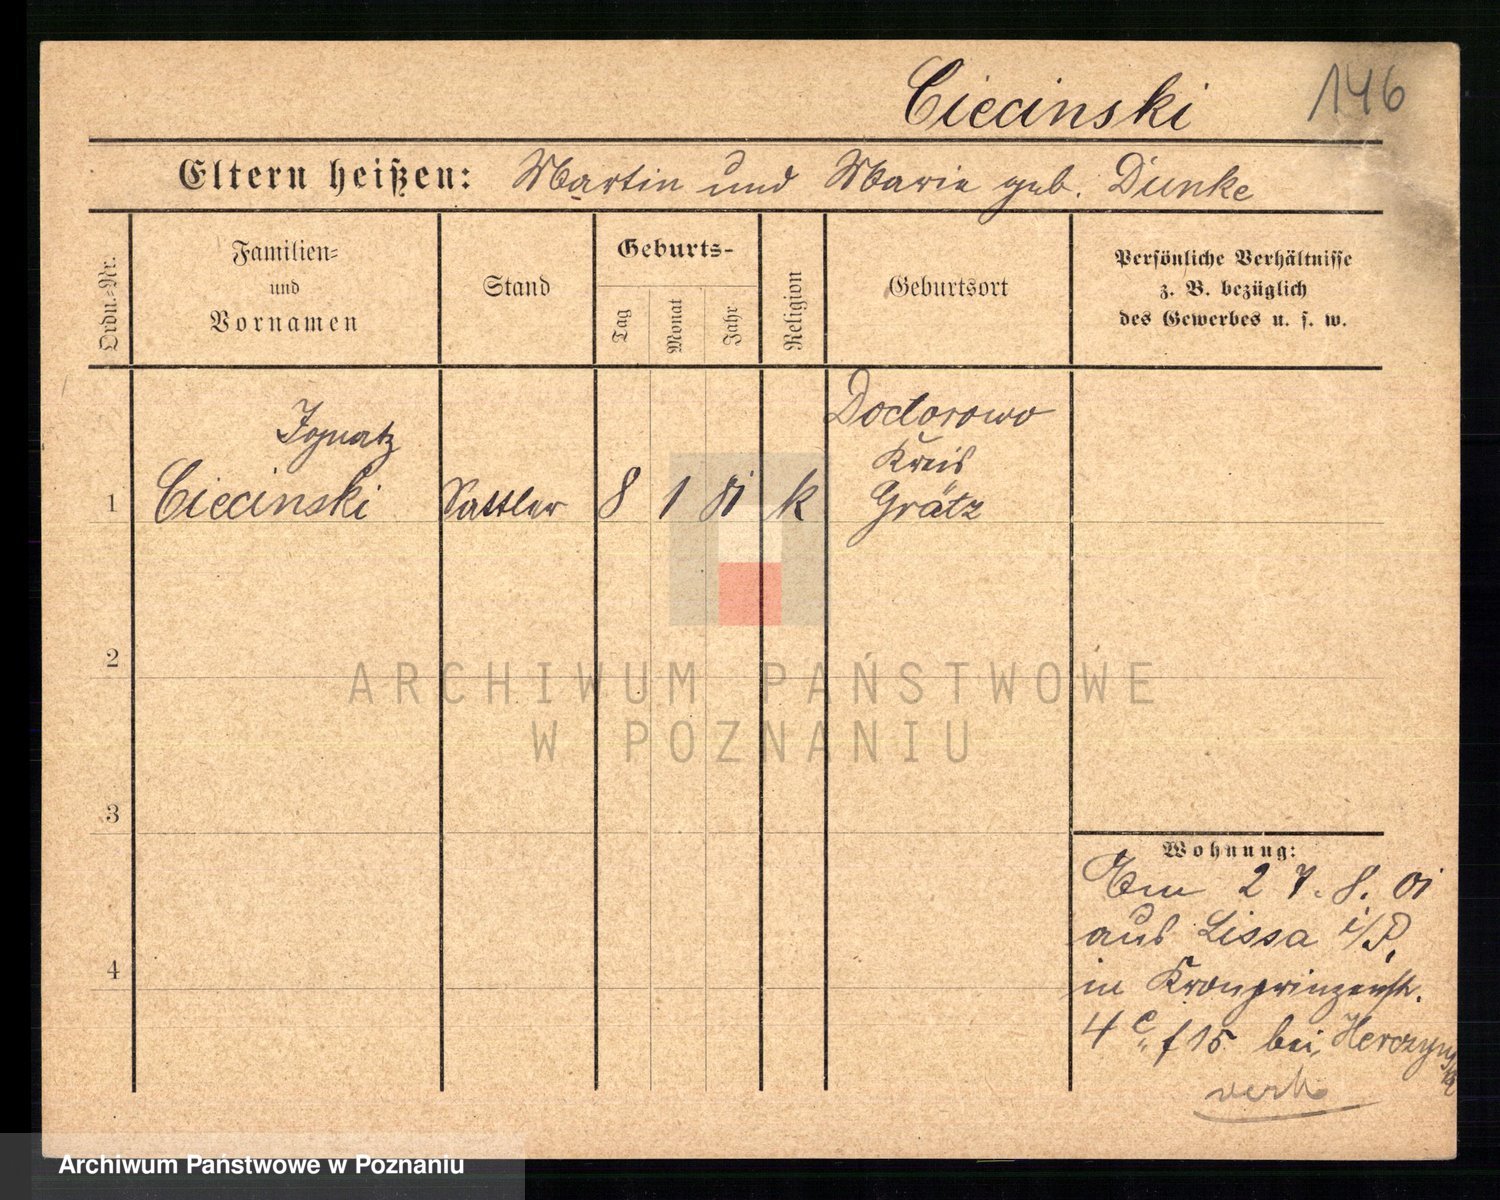 Ciecinski 146
Eltern heißen: Martin und Marie geb. Dunke
Ordn.-Nr.
Familien-
und
Vornamen
Stand
Geburts-
Tag
Monat
Jahr
Religion
Geburtsort
Persönliche Verhältnisse
z. B. bezüglich
des Gewerbes u. s. w.
Ignatz
1 Ciecinski Sattler 8 1 81 k
Doctorowo
Kreis
Grätz
2
3
4
Wohnung:
27. 8. 01
aus Lissa i/P.
in Kronprinzenstr.
4 bei
ARCHIWUM PAŃSTWOWE
W POZNANIU
Archiwum Państwowe w Poznaniu